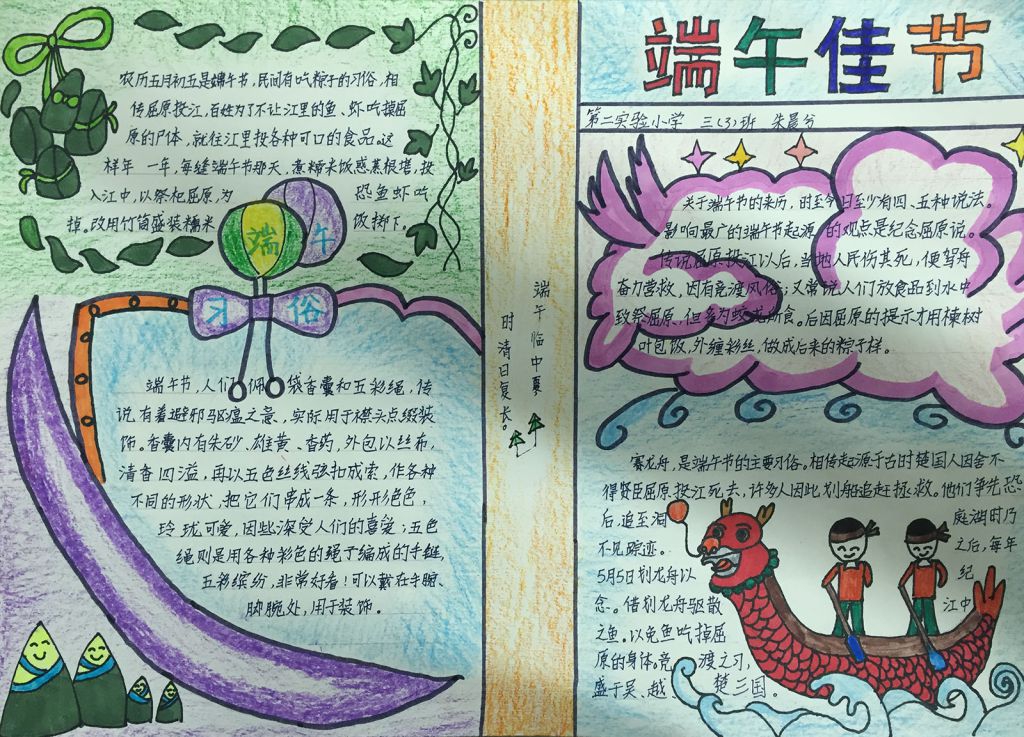 农历五月初五是端午节，民间有吃粽子的习俗，相
传屈原投江，百姓为了不让江里的鱼、虾吃掉屈
原的尸体，就往江里投各种可口的食品。这
样年一年，每缝端午节那天，煮糯米饭惑蒸根堪，投
入江中，以祭杞屈原，为恐鱼虾吃
掉，改用竹筒盛装糯米饭掷下。
端午
习俗
端午节，人们佩袋香囊和五彩绳，传
说有着避邪驱瘟之意、实际用于襟头点缀装
饰。香囊内有朱砂、雄黄、香药，外包以丝布，
清香四溢，再以五色丝线弦扣成索，作各种
不同的形状，把它们串成一条，形形色色，
玲珑可爱，因些深受人们的喜爱；五色
绳则是用各种彩色的绳子编成的手链，
五彩缤纷，非常好看！可以戴在手腕、
脚腕处，用于装饰。
端午临中夏
时清日复长。
端午佳节
第二实验小学 三(3)班 朱晨兮
关于端午节的来历，时至今日至少有四、五种说法。
影响最广的端午节起源的观点是纪念屈原说。
传说屈原投江以后，当地人民伤其死，便驾舟
奋力营救，因有竞渡风俗；又常说人们放食品到水中
致祭屈原，但多为蛟龙所食。后因屈原的提示才用楝树
叶包饭，外缠彩丝，做成后来的粽子样。
赛龙舟，是端午节的主要习俗。相传起源于古时楚国人因舍不
得贤臣屈原投江死去，许多人因此划船追赶拯救。他们争先恐
后，追至洞庭湖时乃
不见踪迹。之后，每年
5月5日划龙舟以纪
念。借划龙舟驱散江中
之鱼。以免鱼吃掉屈
原的身体。竞渡之习，
盛于吴、越、楚三国。